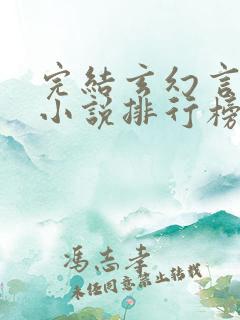 完結玄幻言
小說排行榜
馮志孝
未经同意禁止转载